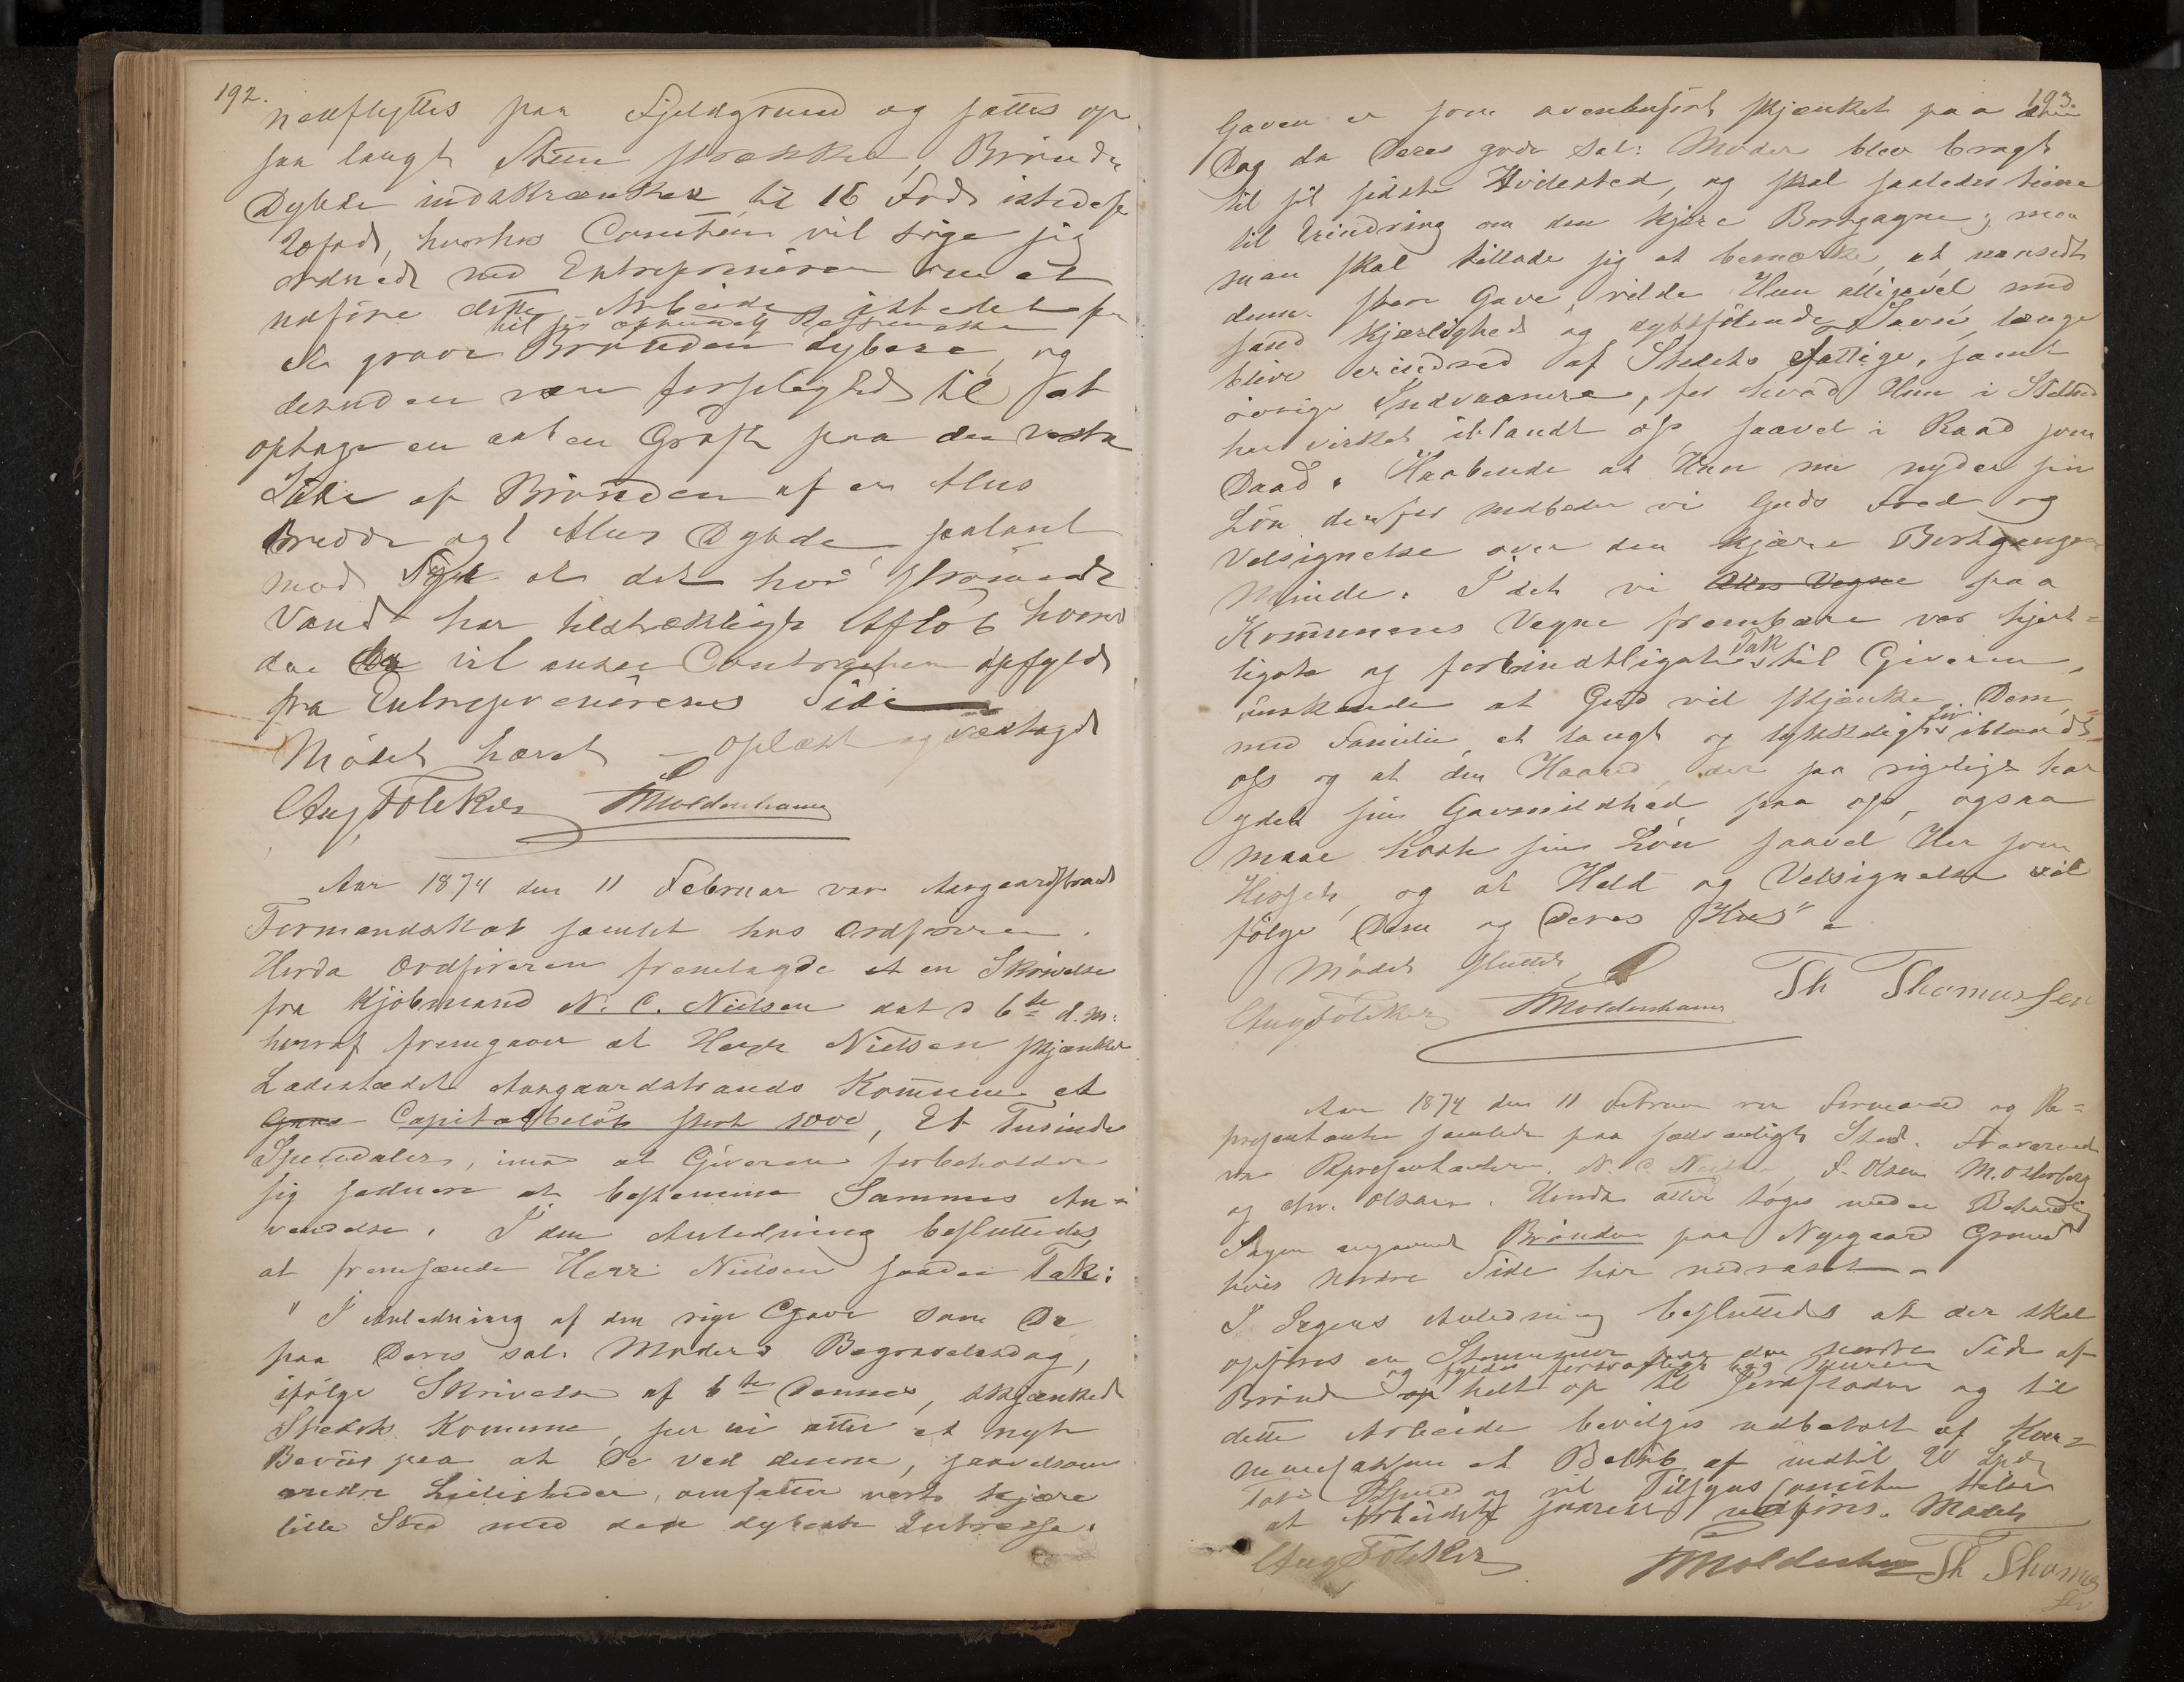 192.
nedflyttes paa Fjeldgrund og sættes op
saa langt Steen strækker, Brønds
Dybde indskrænkes til 16 Fod istedef
20 fod, hvorhos Comiteen vil søge sig
ordnedt med Entreprenøren om at
udføre dette Arbeide istedet for
til sin oprindelig
at grave Brønden dybere, og
desuden være forpligted til at
optage en aaben Grøft paa den vestre
Side af Brønden af en Alns
Bredde og 1 Alns Dybde, saaledes
mod Syd at det her strømmende
Vand har tilstrækkeligt Afløb hvorved
den da vil ansee Contracten opfyldt
fra Entreprenørens Side
Mødet hævet – oplæst og vedtaget
Aug Føleker Moldenhauer
Aar 1874 den 11 Februar var Aasgaardstrands
Formandskab samlet hos Ordføreren.
Herda Ordføreren fremlagde et en Skrivelse
fra Kjøbmand N. C. Nielsen dat d 6te d.m:
hvoraf fremgaar at Herr Nielsen skjænker
Ladestædet Aasgaardstrands Kommune et
Capitalbeløb stort 1000, Et Tusinde
Speciedaler, imod at Giveren forbeholder
sig sednere at bestemme Sammes An=
vendelse. I den Anledning besluttedes
at fremsænde Herr Nielsen saadan Tak:
" I Anledning af den rige Gave som De
paa Deres sal. Moders Begravelsesdag,
ifølge Skrivelse af 6te Dennes, skjænked
Stedets Komune, ser vi atter et nyt
Beviis paa at De ved denne, saavelsom
andre Leiligheder, omfatter vort kjære
lille Sted med den dybeste Intresse.
193.
Gaven er som ovenanført skjænket paa den
Dag da Deres gode Sal: Moder blev bragt
til sit sidste Hvilested, og skal saaledes tiene
til Erindring om den kjære Bortgagne; men
man skal tillade sig at bemærke, at, uanseet
denne store Gave, vilde Hun alligevel med
sand Kjærlighed og dybtfølende Savn længe
blive erindred af Stedets Fattige, samt
øvrige Indvaanere, for hvad Hun i Stilhed
har virket iblandt os, saavel i Raad som
Daad. Haabende at Hun nu nyder sin
Løn derfor nedbeder vi Guds Fred og
Velsignelse over den kjære Bortgangne
Minde. I det vi Alles Vegne paa
Kommunens Vegne frembære vor hjert=
ligste og forbindtligste Tak til Giveren,
ønskende at Gud vil skjænke Dem,
med Familie, et langt og lykkeligt Liv iblandt
os og at den Haand, der saa rigeligt har
ydet sin Gavmildhed paa os, ogsaa
maae høste sin Løn saavel Her som
Hisset, og at Held og Velsignelse vil
følge Dem og Deres Huus" –
Mødet sluttet
Aug Føleker Moldenhauer Th Thomassen
Aar 1874 den 11 Februar var Formænd og Re=
presentanter samlede paa sædvanligt Sted. Fraværende
var Representanterne N. C. Nielsen, S. Olsen M. Osterberg
og Chr. Olsen. Herda atter toges under Behandling
Sagen angaaende Brønden paa Nygaard Grund
hvis nordre Side har nedraset –
I Sagens Anledning besluttedes at der skal
opføres en Steenmuur paa den nordre Side af
og fyldes forsvarligt bag Muren
Brønd op helt op til Jordfladen og til
dette Arbeide bevilges udbetalt af Kom=
munekassen et Beløb af indtil 20 Spd
at Arbeidet snarest udføres. Mødet
Aug Føleker Moldenhauer Th Thomas
sen